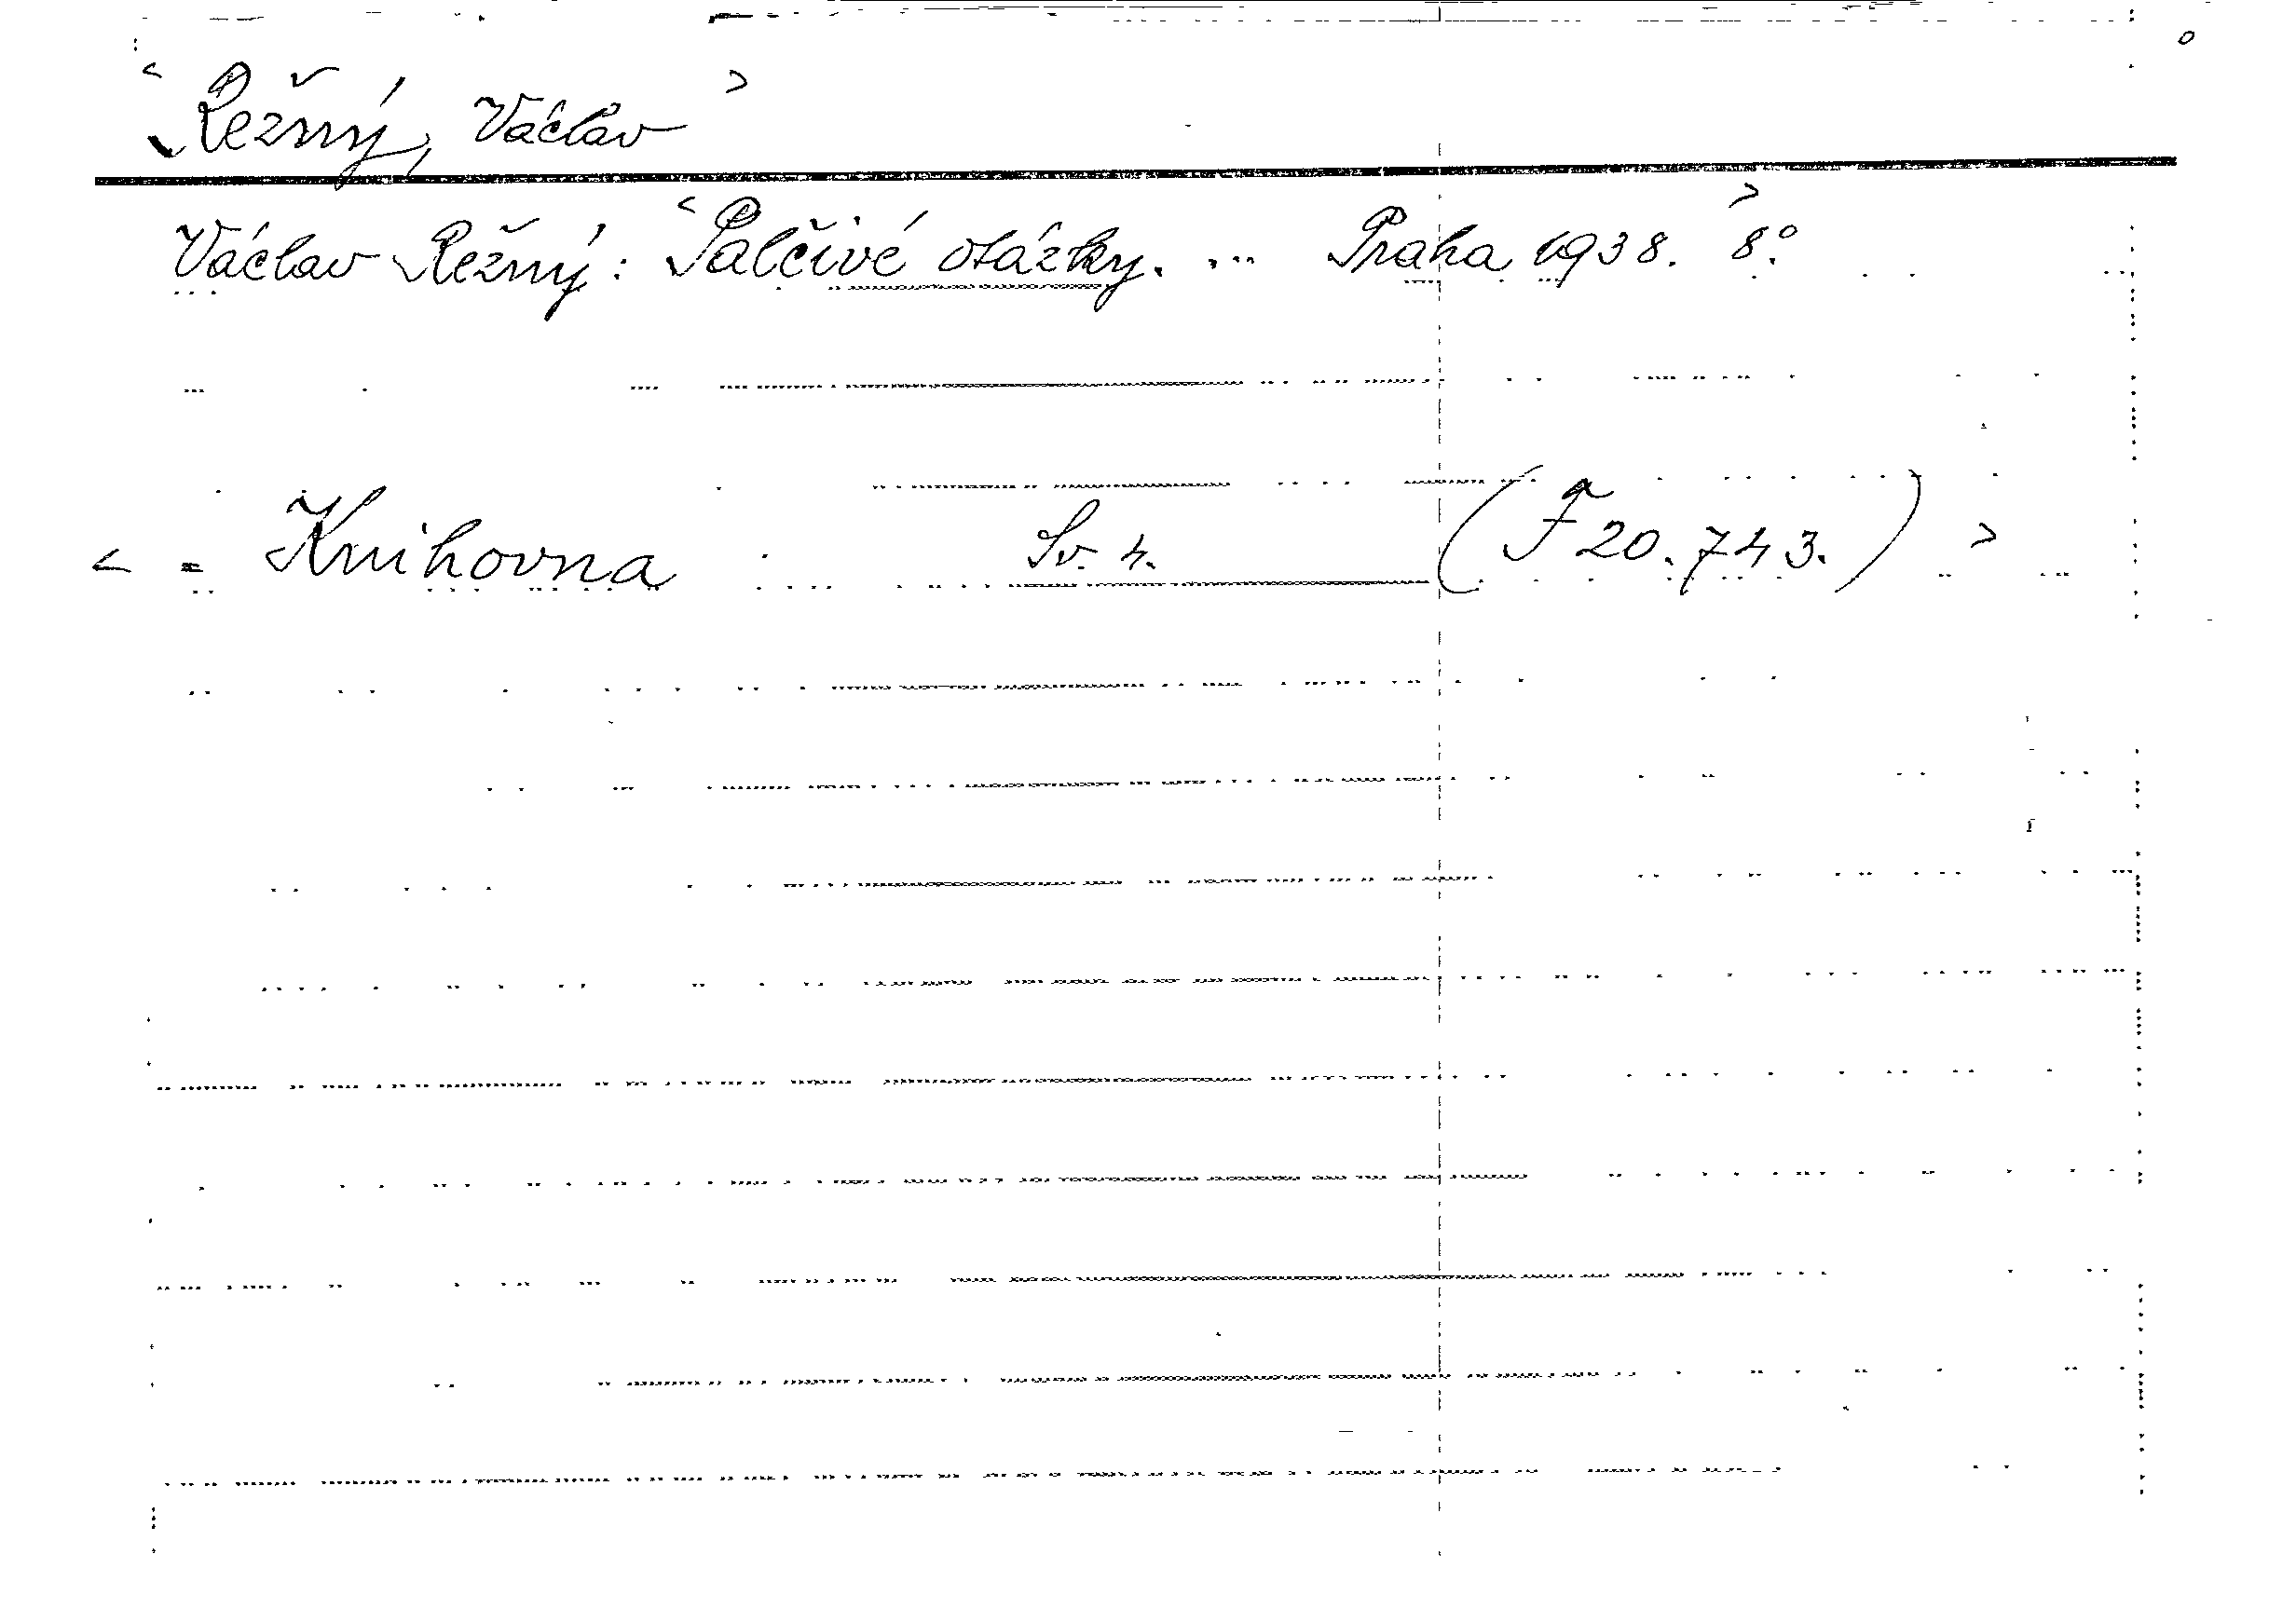 <Režný, Václav>
Václav Režný: <Palčivé otázky. ... Praha 1938.> 8°.
< = Knihovna : Sv. 4. (F 20.743.) >